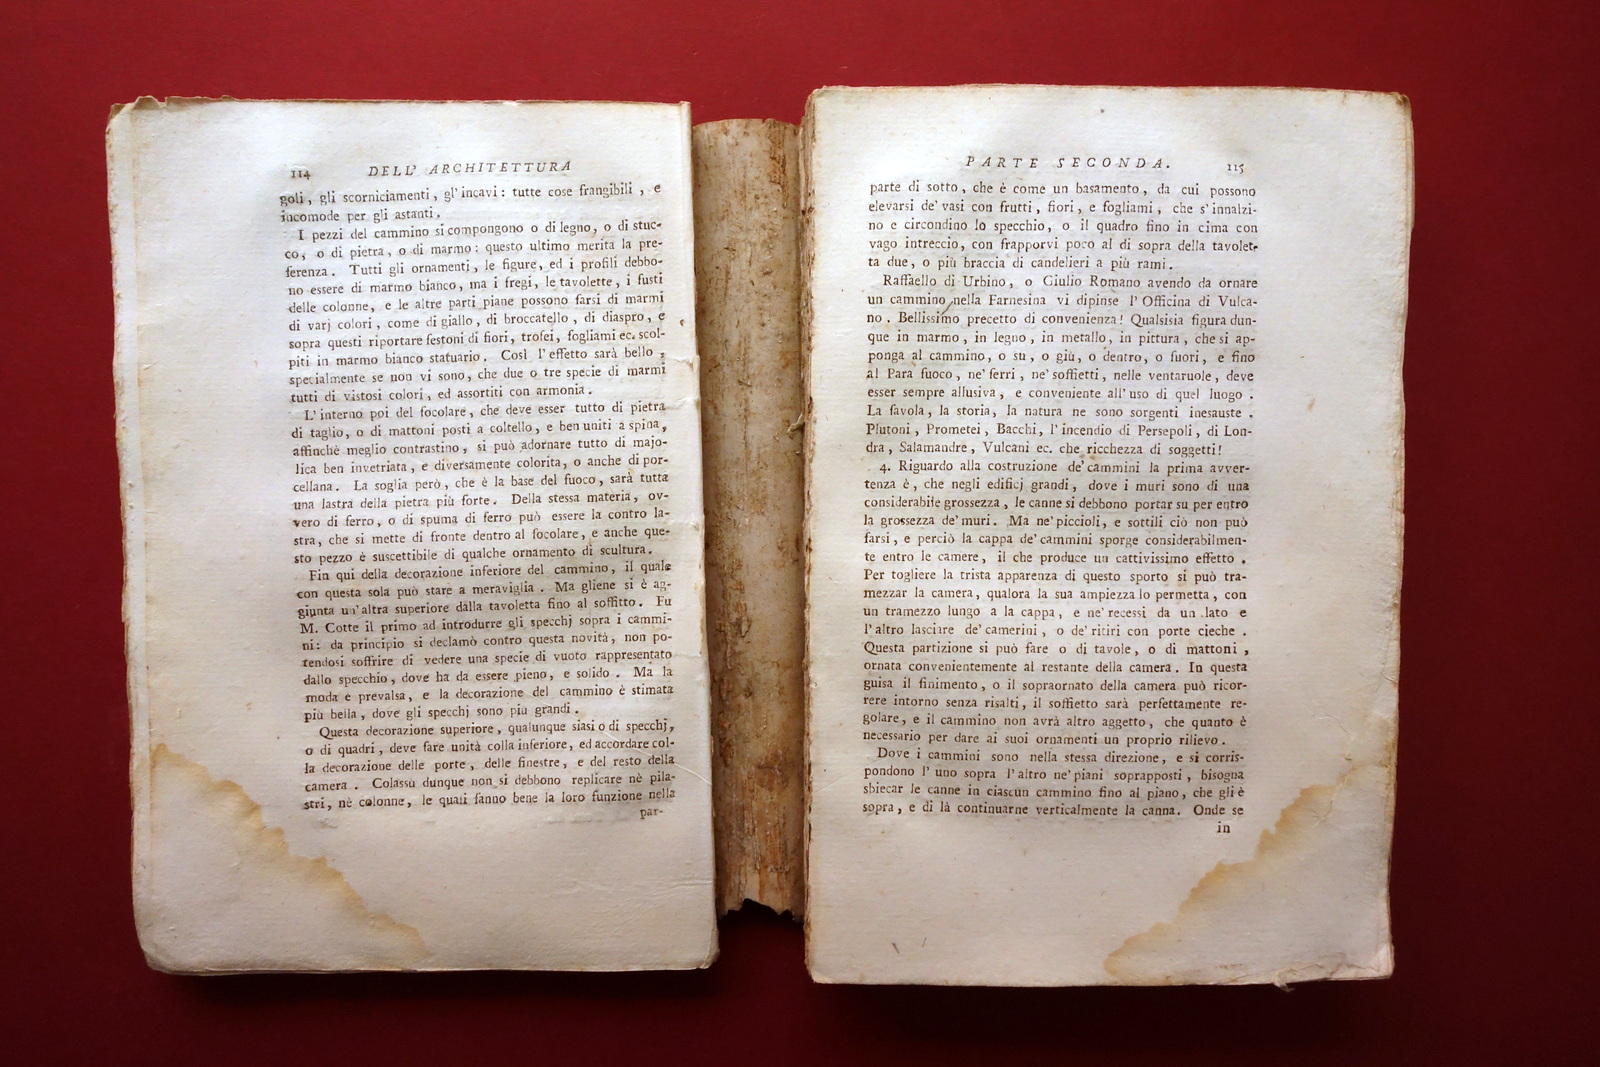 114 DELL' ARCHITETTURA
goli, gli scorniciamenti, gl'incavi: tutte cose frangibili, e
incomode per gli astanti.
I pezzi del cammino si compongono o di legno, o di stuc-
co, o di pietra, o di marmo: questo ultimo merita la pre-
ferenza. Tutti gli ornamenti, le figure, ed i profili debbo-
no essere di marmo bianco, ma i fregi, le tavolette, i fusti
delle colonne, e le altre parti piane possono farsi di marmi
di varj colori, come di giallo, di broccatello, di diaspro, e
sopra questi riportare festoni di fiori, trofei, fogliami ec. scol-
piti in marmo bianco statuario. Così l'effetto sarà bello,
specialmente se non vi sono, che due o tre specie di marmi
tutti di vistosi colori, ed assortiti con armonia.
L'interno poi del focolare, che deve esser tutto di pietra
di taglio, o di mattoni posti a coltello, e ben uniti a spina,
affinchè meglio contrastino, si può adornare tutto di majo-
lica ben invetriata, e diversamente colorita, o anche di por-
cellana. La soglia però, che è la base del fuoco, sarà tutta
una lastra della pietra più forte. Della stessa materia, ov-
vero di ferro, o di spuma di ferro può essere la contro la-
stra, che si mette di fronte dentro al focolare, e anche que-
sto pezzo è suscettibile di qualche ornamento di scultura.
Fin qui della decorazione inferiore del cammino, il quale
con questa sola può stare a meraviglia. Ma gliene si è ag-
giunta un'altra superiore dalla tavoletta fino al soffitto. Fu
M. Cotte il primo ad introdurre gli specchj sopra i cammi-
ni: da principio si declamò contro questa novità, non po-
tendosi soffrire di vedere una specie di vuoto rappresentato
dallo specchio, dove ha da essere pieno, e solido. Ma la
moda e prevalsa, e la decorazione del cammino è stimata
più bella, dove gli specchj sono più grandi.
Questa decorazione superiore, qualunque siasi o di specchj,
o di quadri, deve fare unità colla inferiore, ed accordare col-
la decorazione delle porte, delle finestre, e del resto della
camera. Colassù dunque non si debbono replicare nè pila-
stri, nè colonne, le quali fanno bene la loro funzione nella
par-
PARTE SECONDA. 115
parte di sotto, che è come un basamento, da cui possono
elevarsi de' vasi con frutti, fiori, e fogliami, che s'innalzi-
no e circondino lo specchio, o il quadro fino in cima con
vago intreccio, con frapporvi poco al di sopra della tavolet-
ta due, o più braccia di candelieri a più rami.
Raffaello di Urbino, o Giulio Romano avendo da ornare
un cammino nella Farnesina vi dipinse l'Officina di Vulca-
no. Bellissimo precetto di convenienza! Qualsisia figura dun-
que in marmo, in legno, in metallo, in pittura, che si ap-
ponga al cammino, o su, o giù, o dentro, o fuori, e fino
al Para fuoco, ne' ferri, ne' soffietti, nelle ventaruole, deve
esser sempre allusiva, e conveniente all'uso di quel luogo.
La favola, la storia, la natura ne sono sorgenti inesauste.
Plutoni, Prometei, Bacchi, l'incendio di Persepoli, di Lon-
dra, Salamandre, Vulcani ec. che ricchezza di soggetti!
4. Riguardo alla costruzione de' cammini la prima avver-
tenza è, che negli edificj grandi, dove i muri sono di una
considerabile grossezza, le canne si debbono portar su per entro
la grossezza de' muri. Ma ne' piccioli, e sottili ciò non può
farsi, e perciò la cappa de' cammini sporge considerabilmen-
te entro le camere, il che produce un cattivissimo effetto.
Per togliere la trista apparenza di questo sporto si può tra-
mezzar la camera, qualora la sua ampiezza lo permetta, con
un tramezzo lungo a la cappa, e ne' recessi da un lato e
l'altro lasciare de' camerini, o de' ritiri con porte cieche.
Questa partizione si può fare o di tavole, o di mattoni,
ornata convenientemente al restante della camera. In questa
guisa il finimento, o il sopraornato della camera può ricor-
rere intorno senza risalti, il soffietto sarà perfettamente re-
golare, e il cammino non avrà altro aggetto, che quanto è
necessario per dare ai suoi ornamenti un proprio rilievo.
Dove i cammini sono nella stessa direzione, e si corris-
pondono l'uno sopra l'altro ne' piani soprapposti, bisogna
sbiecar le canne in ciascun cammino fino al piano, che gli è
sopra, e di là continuarne verticalmente la canna. Onde se
in